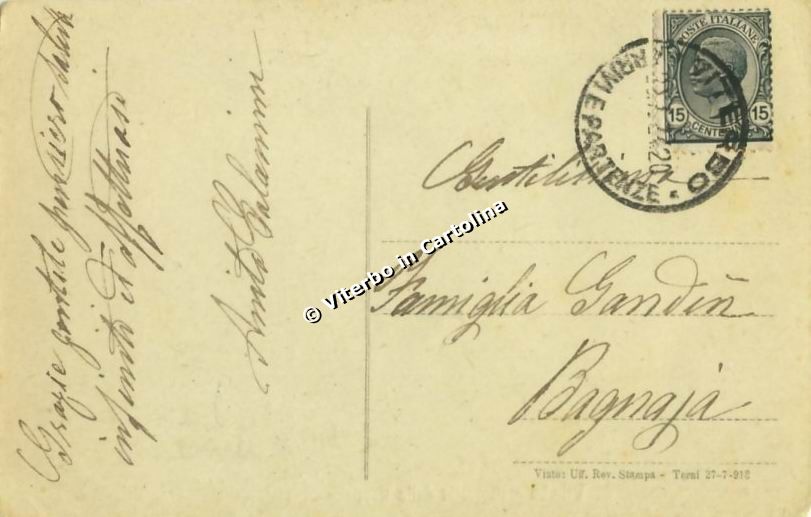 Grazie gentile pensiero saluti
infiniti ed affettuosi
Anita Calamini
POSTE ITALIANE
15 15
CENTESIMI
VITERBO
ARRIVI E PARTENZE
20
Gentilissima
Famiglia Gandin
Bagnaja
© Viterbo in Cartolina
Visto: Uff. Rev. Stampa - Terni 27-7-918